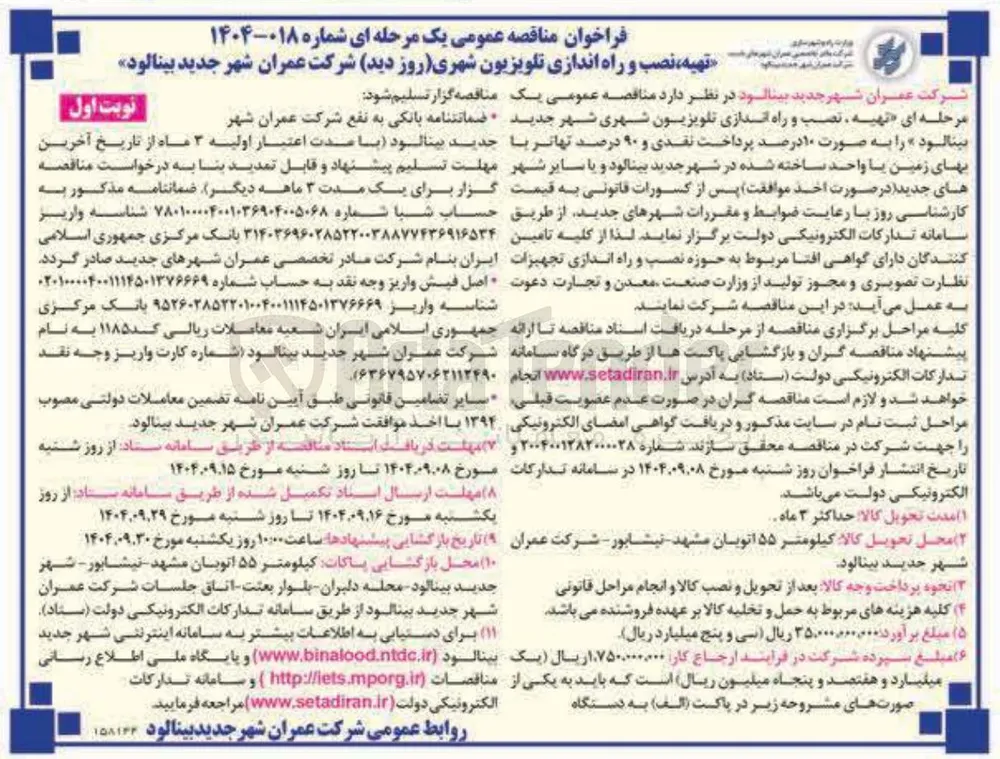 فراخوان مناقصه عمومی یک مرحله ای شماره ۰۱۸-۱۴۰۴
«تهیه،نصب و راه اندازی تلویزیون شهری(روز دید) شرکت عمران شهر جدید بینالود»
وزارت راه و شهرسازی
نوبت اول
شرکت عمران شهر جدید بینالود در نظر دارد مناقصه عمومی یک
مرحله ای «تهیه ، نصب و راه اندازی تلویزیون شهری شهر جدید
بینالود » را به صورت ۱۰درصد پرداخت نقدی و ۹۰ درصد تهاتر با
بهای زمین یا واحد ساخته شده در شهر جدید بینالود و یا سایر شهر
های جدید(درصورت اخذ موافقت)پس از کسورات قانونی به قیمت
کارشناسی روز با رعایت ضوابط و مقررات شهرهای جدید، از طریق
سامانه تدارکات الکترونیکی دولت برگزار نماید. لذا از کلیه تامین
کنندگان دارای گواهی افتا مربوط به حوزه نصب و راه اندازی تجهیزات
نظارت تصویری و مجوز تولید از وزارت صنعت ،معدن و تجارت دعوت
به عمل می‌آید؛ در این مناقصه شرکت نمایند.
کلیه مراحل برگزاری مناقصه از مرحله دریافت اسناد مناقصه تا ارائه
پیشنهاد مناقصه گران و بازگشایی پاکت ها از طریق درگاه سامانه
تدارکات الکترونیکی دولت (ستاد) به آدرس www.setadiran.ir انجام
خواهد شد و لازم است مناقصه گران در صورت عدم عضویت قبلی،
مراحل ثبت نام در سایت مذکور و دریافت گواهی امضای الکترونیکی
را جهت شرکت در مناقصه محقق سازند. شماره ۲۰۰۴۰۰۱۲۸۲۰۰۰۰۲۸ و
تاریخ انتشار فراخوان روز شنبه مورخ ۱۴۰۴.۰۹.۰۸ در سامانه تدارکات
الکترونیکی دولت می‌باشد.
۱)مدت تحویل کالا: حداکثر ۳ ماه .
۲)محل تحویل کالا: کیلومتر ۵۵ اتوبان مشهد-نیشابور- شرکت عمران
شهر جدید بینالود.
۳)نحوه پرداخت وجه کالا: بعد از تحویل و نصب کالا و انجام مراحل قانونی
۴) کلیه هزینه های مربوط به حمل و تخلیه کالا بر عهده فروشنده می باشد.
۵) مبلغ برآورد: ۳۵.۰۰۰.۰۰۰.۰۰۰ ریال (سی و پنج میلیارد ریال).
۶)مبلغ سپرده شرکت در فرایند ارجاع کار: ۱.۷۵۰.۰۰۰.۰۰۰ریال (یک
میلیارد و هفتصد و پنجاه میلیون ریال) است که باید به یکی از
صورت‌های مشروحه زیر در پاکت (الف) به دستگاه
مناقصه‌گزار تسلیم‌شود:
* ضمانتنامه بانکی به نفع شرکت عمران شهر
جدید بینالود (با مدت اعتبار اولیه ۳ ماه از تاریخ آخرین
مهلت تسلیم پیشنهاد و قابل تمدید بنا به درخواست مناقصه
گزار برای یک مدت ۳ ماهه دیگر). ضمانتنامه مذکور به
حساب شبا شماره ۷۸۰۱۰۰۰۰۴۰۰۱۰۳۶۹۰۴۰۰۵۰۶۸ شناسه واریز
۳۱۴۰۳۶۹۶۰۲۸۵۲۲۰۰۳۸۸۷۷۴۳۶۹۱۶۵۳۴ بانک مرکزی جمهوری اسلامی
ایران بنام شرکت مادر تخصصی عمران شهرهای جدید صادر گردد.
* اصل فیش واریز وجه نقد به حساب شماره ۰۲۰۱۰۰۰۰۴۰۰۱۱۱۴۵۰۱۳۷۶۶۶۹
شناسه واریز ۹۵۲۶۰۲۸۵۲۲۰۱۰۰۴۰۰۱۱۱۴۵۰۱۳۷۶۶۶۹ بانک مرکزی
جمهوری اسلامی ایران شعبه معاملات ریالی کد۱۱۸۵ به نام
شرکت عمران شهر جدید بینالود (شماره کارت واریز وجه نقد
۶۳۶۷۹۵۷۰۶۲۱۱۲۴۹۰).
* سایر تضامین قانونی طبق آیین نامه تضمین معاملات دولتی مصوب
۱۳۹۴ با اخذ موافقت شرکت عمران شهر جدید بینالود.
۷)مهلت دریافت اسناد مناقصه از طریق سامانه ستاد: از روز شنبه
مورخ ۱۴۰۴.۰۹.۰۸ تا روز شنبه مورخ ۱۴۰۴.۰۹.۱۵
۸)مهلت ارسال اسناد تکمیل شده از طریق سامانه ستاد: از روز
یکشنبه مورخ ۱۴۰۴.۰۹.۱۶ تا روز شنبه مورخ ۱۴۰۴.۰۹.۲۹
۹)تاریخ بازگشایی پیشنهادها: ساعت ۱۰:۰۰ روز یکشنبه مورخ ۱۴۰۴.۰۹.۳۰
۱۰)محل بازگشایی پاکات: کیلومتر ۵۵ اتوبان مشهد-نیشابور- شهر
جدید بینالود-محله دلبران-بلوار بعثت-اتاق جلسات شرکت عمران
شهر جدید بینالود از طریق سامانه تدارکات الکترونیکی دولت (ستاد).
۱۱) برای دستیابی به اطلاعات بیشتر به سامانه اینترنتی شهر جدید
بینالود (www.binalood.ntdc.ir) و پایگاه ملی اطلاع رسانی
مناقصات (http://iets.mporg.ir ) و سامانه تدارکات
الکترونیکی دولت (www.setadiran.ir) مراجعه فرمایید.
روابط عمومی شرکت عمران شهر جدید بینالود
۱۵۸۱۴۴